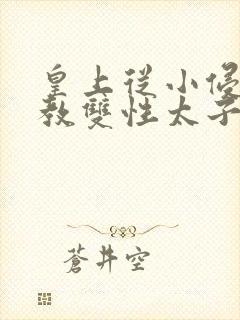 皇上從小侵
教雙性太子
蒼井空